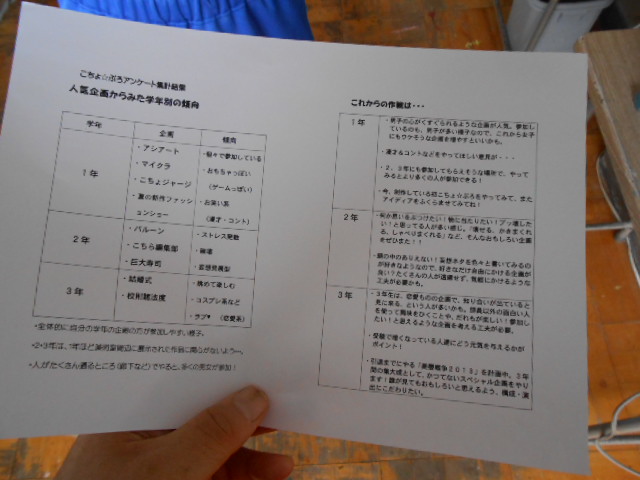 こちょ☆ぷろアンケート集計結果
人気企画からみた学年別の傾向
学年 企画 傾向
1年
・アシアート
・マイクラ
・こちょジャージ
・夏の新作ファッションショー
・個々で参加している
・おもちゃっぽい
(ゲームっぽい)
・お笑い系
(漫才・コント)
2年
・バルーン
・こちら編集部
・巨大寿司
・ストレス発散
・破壊
・妄想発展型
3年
・結婚式
・校則雑法度
・眺めて楽しむ
・コスプレ系など
・ラブ♥ (恋愛系)
・全体的に自分の学年の企画の方が参加しやすい様子。
・2・3年は、1年ほど美術室周辺に展示された作品に関心がないよう…。
・人がたくさん通るところ(廊下など)でやると、多くの男女が参加!
これからの作戦は・・・
1年
・男子の心がくすぐられるような企画が人気。参加し
ているのも、男子が多い様子なので、これから女子
にもウケそうな企画を増やすといいかも。
・漫才&コントなどをやってほしい意見が・・・
・2、3年にも参加してもらえそうな場所で、やって
みるとより多くの人が参加できる!
・今、制作している初こちょ☆ぷろをやってみて、また
アイディアをふくらませてみてね!
2年
・何か思いをぶつけたい!物に当たりたい!ブッ壊した
い!と思ってる人が多い感じ。「壊せる、かきまくれ
る、しゃべりまくれる」など、そんなおもしろい企画
をぜひまた!!
・頭の中のありえない!妄想ネタを色々と書いてみるの
が好きなようなので、好きなだけ自由にかける企画が
良い?たくさんの人が遠慮せず、気軽にかけるような
工夫が必要かも。
3年
・3年生は、恋愛ものの企画で、知り合いが出ていると
見に来る、という人が多いかも。部員以外の面白い人
を使って興味をひくことや、だれもが楽しい!参加し
たい!と思えるような企画を考える工夫が必要。
・受験で暗くなっている人達にどう元気を与えるかが
ポイント!
・引退までにやる「

」を計画中。3年
間の集大成として、かつてないスペシャル企画をやり
ます!誰が見てもおもしろいと思えるよう、構成・演
出にこだわりたい。